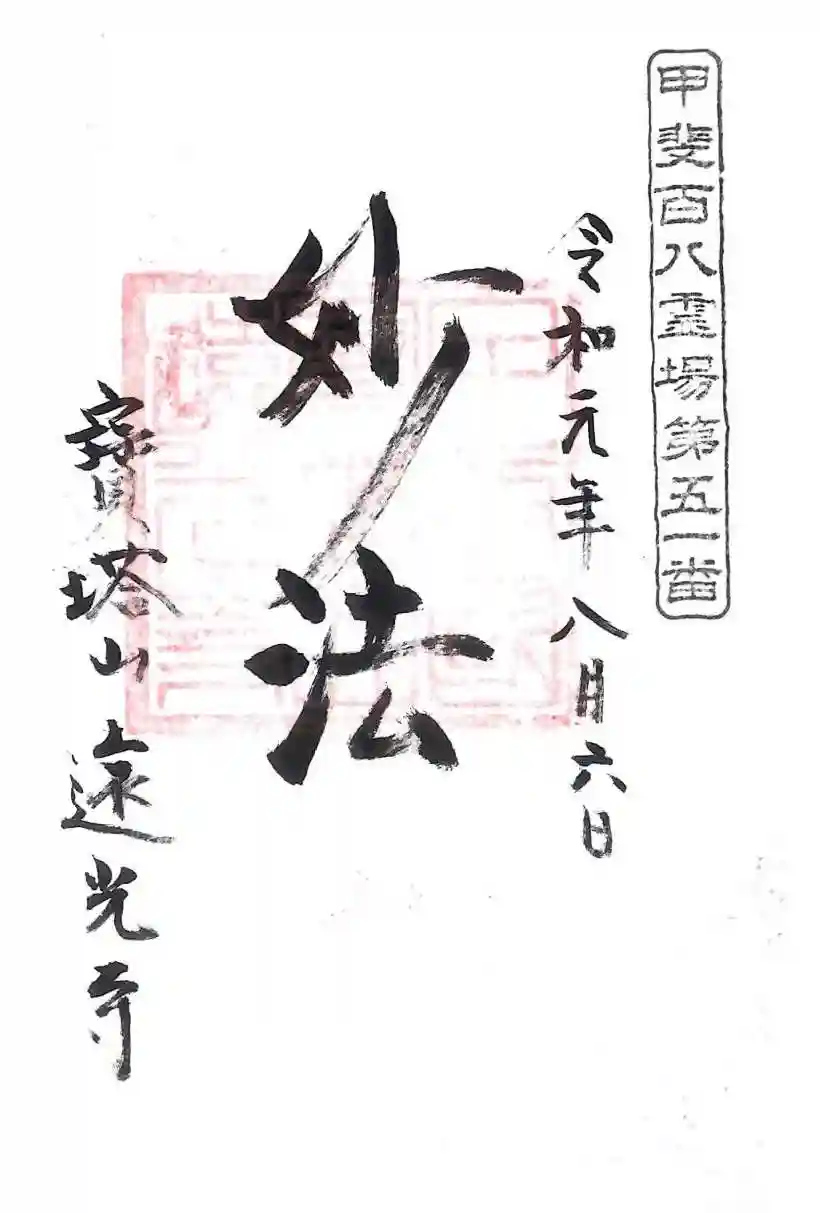 甲斐百八霊場第五一番
令和元年八月六日
妙法
寳塔山遠光寺